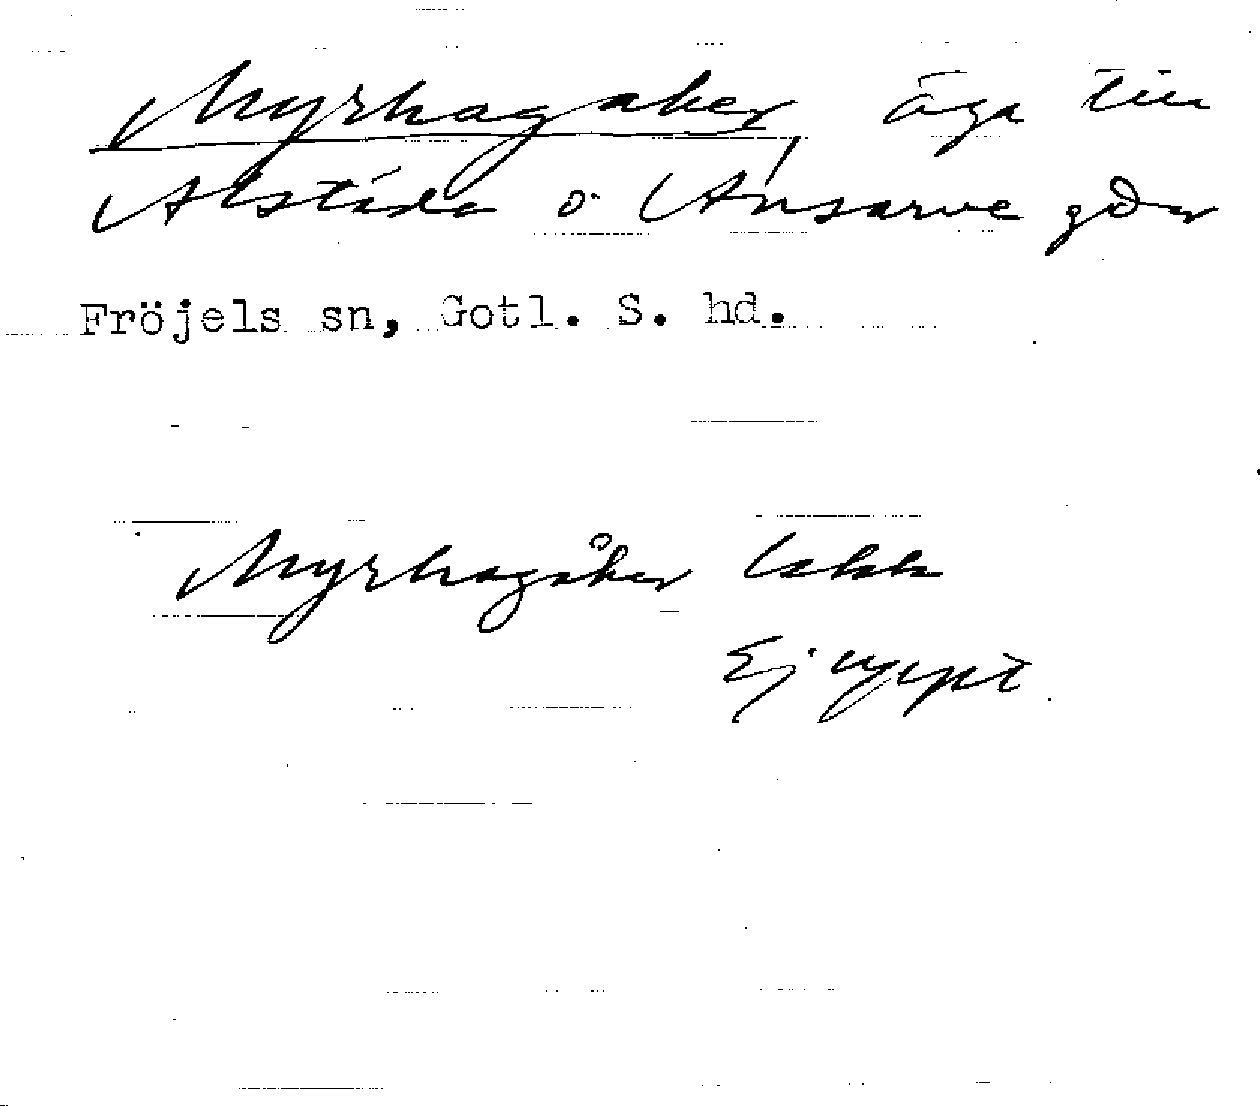 Myrhagaker, äga till
Alstäde o. Ansarve gdar
Fröjels sn, Gotl. S. hd.
Myrhagåker Lskk
Ej uppt.